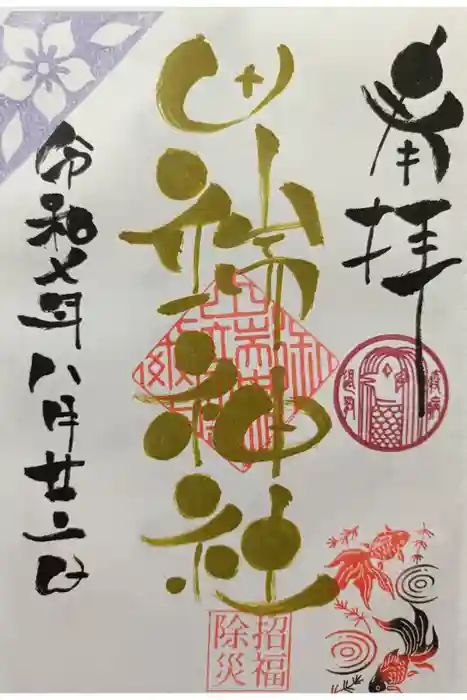 奉拝
山端神社
令和七年八月廿二日
招福
除災